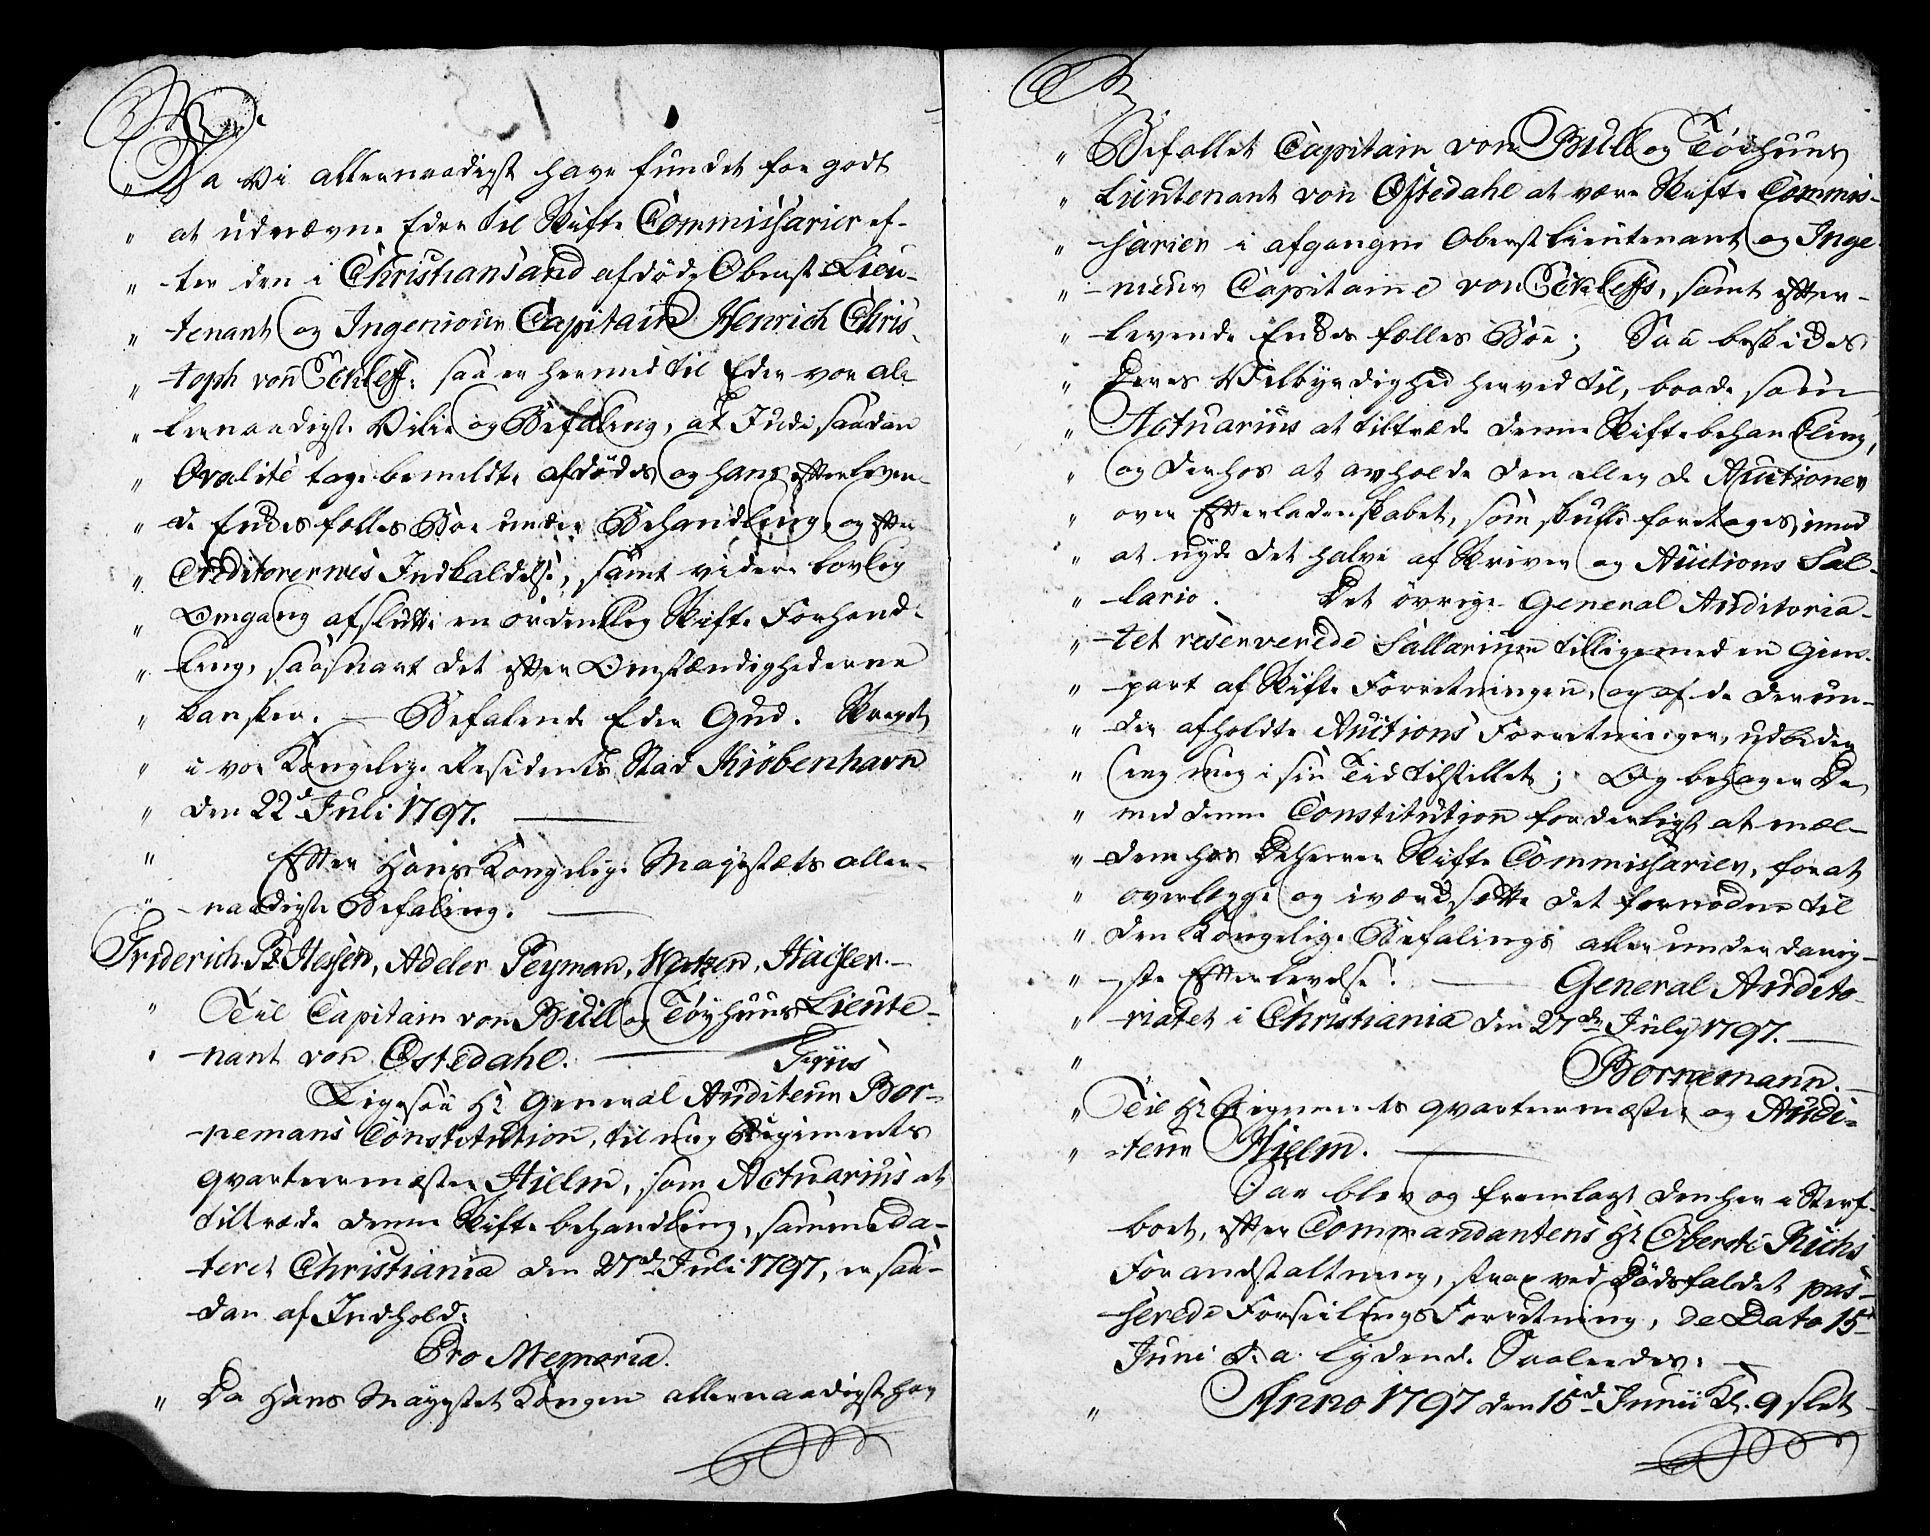 " Da Vi allernaadigst have fundet for godt
" at udnævne Eder til Skifte Commissarier ef-
" ter den i Christiansand afdøde Oberst Lieu-
" tenant og Ingenieur Capitain Henrich Chris-
" toph von Eckleff: saa er hermed til Eder vor al-
" lernaadigste Villie og Befaling, at I udi saadan
" Qvalité tage bemeldte afdødes og hans efterleven-
" de Enkes fælles Boe under Behandling, og efter
" Creditorernes Indkaldelse, samt videre lovlig
" Omgang afslutte en ordentlig Skifte Forhand-
" ling, saasnart det efter Omstændighederne
" kan skee. — Befalende Eder Gud. Skrevet
" i vor Kongelige Residents Stad Kiøbenhavn
" den 22d Juli 1797. —
" Efter Hans Kongelige Mayestæts aller-
" naadigste Befaling. —
Friderich Pz Hessen, Adeler Peyman, Haisler. —
" Til Capitain von Bull og Tøyhuus Lieute-
" nant von Ostedahl. — Friis
Ligesaa Hr General Auditeur Bor-
nemans Constitution, til mig Regiments
qvarteermæster Hielm, som Actuarius at
tiltræde denne Skifte behandling, samme da-
teret Christiania den 27d Juli 1797, er saa-
dan af Indhold:
Pro Memoria.
" Da Hans Mayestet Kongen allernaadigst har
" Befallet Capitain von Bull og Tøihuus
" Lieutenant von Ostedahl at være Skifte Commis-
" sarier i afgangne Oberst Lieutenant og Inge-
" nieur Capitaine von Eckleffs, samt efter-
" levende Enkes fælles Boe; Saa beskikkes
" Deres Velbyrdighed herved til, baade som
" Actuarius at tiltræde denne Skifte behandling,
" og derhos at avholde den eller de Auctioner
" over Efterladenskabet, som skulle foretages, imod
" at nyde det halve af Skriver og Auctions Sal-
" lario. Det øvrige General Auditoria-
" tet reserverede Sallarium tilligemed en Gien-
" part af Skifte Forretningen, og af de derun-
" der afholdte Auctions Forretninger, udbeder
" ieg mig i sin Tid tilstillet; Og behager De
" med denne Constitution forderligst at mel-
" dem hos De Herrer Skifte Commissarier, for at
" overlegge og iværdsette det fornødne til
" den Kongelige Befalings allerunderdanig-
" ste Efterlevelse. — General Audito-
" riatet i Christiania den 27de July 1797. —
" Bornemann. —
" Til Hr Regiments qvarteermæster og Audi-
" teur Hielm. —
Saa blev og fremlagt den her i Sterf-
boet, efter Commandantens Hr Oberste Richs
Foranstaltning, strax ved Dødsfaldet pas-
serede Forseilings Forretning, de Dato 15d
Juni d. a. lydende Saaledes: —
" Anno 1797 den 15d Junii Kl. 9 slet